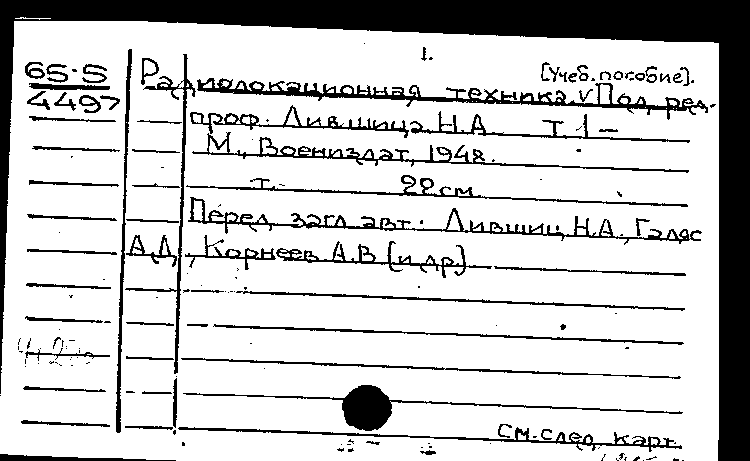 1.
65-5
4497
[Учеб. пособие].
Радиолокационная техника. V Под ред.
проф. Лившица Н.А. Т. 1 –
М., Воениздат, 1948.
т. 22 см.
Перед загл. авт.: Лившиц Н.А., Галяс
А.Д., Корнеев А.В [и др.]
См. след. карт.